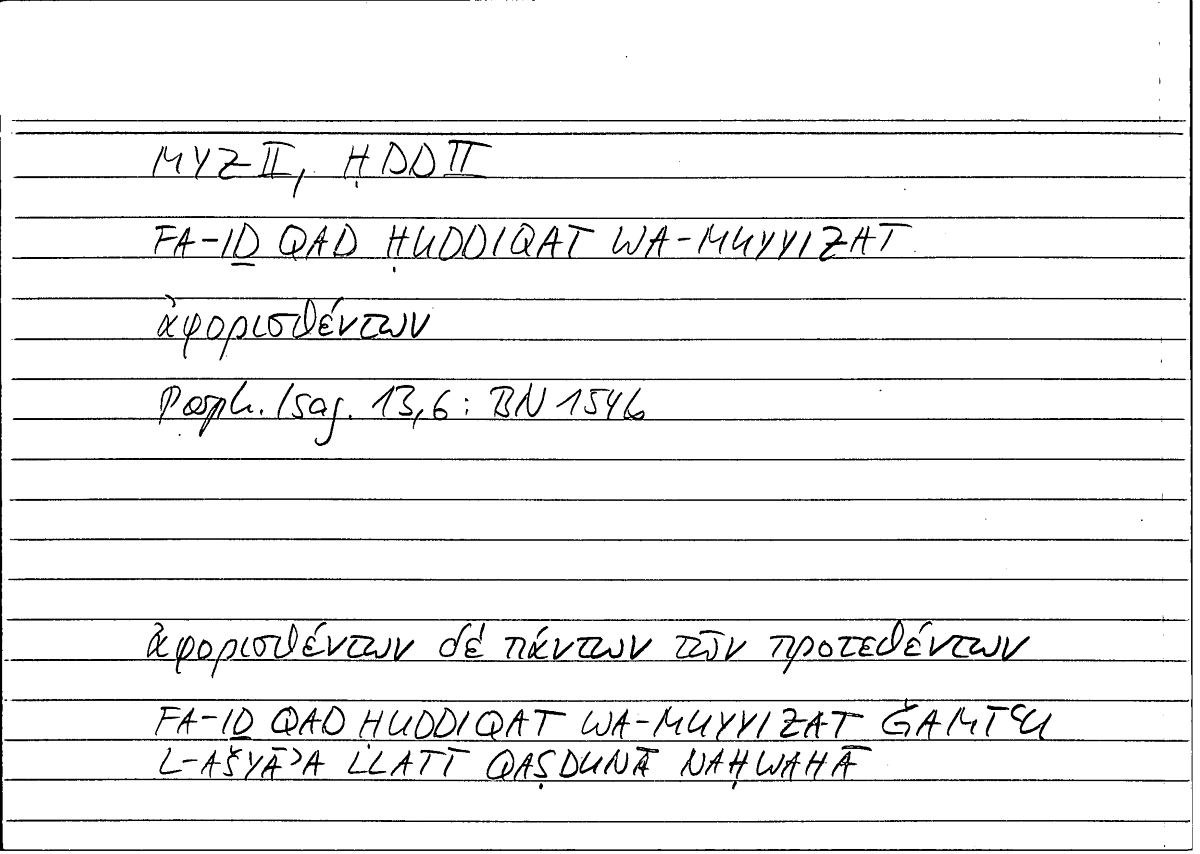 MYZ II, ḤDD II
FA-IḎ QAD ḤUDDIQAT WA-MUYYIZAT
ἀφορισθέντων
Porph. Isag. 13,6: BN 154b
ἀφορισθέντων δέ πάντων τῶν προτεθέντων
FA-IḎ QAD ḤUDDIQAT WA-MUYYIZAT ǦAMĪʿU
L-AŠYĀʾA LLATĪ QAṢDUNĀ NAḤWAHĀ